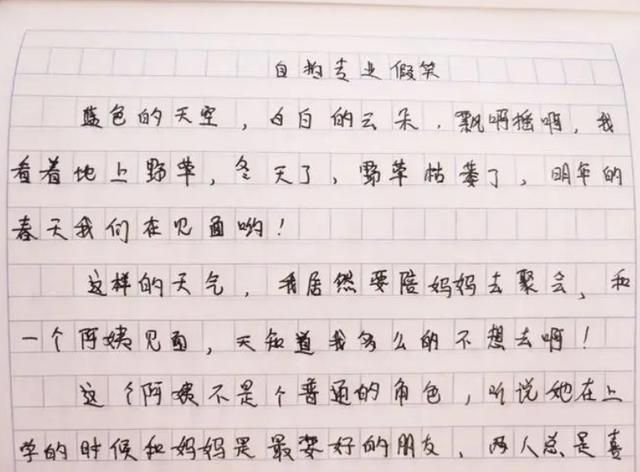 自拘专业假笑
蓝色的天空，白白的云朵，飘啊摇啊，我
看着地上野草，冬天了，野草枯萎了，明年的
春天我们在见面哟！
这样的天气，我居然要陪妈妈去聚会，和
一个阿姨见面，天知道我多么的不想去啊！
这个阿姨不是个普通的角色，听说她在上
学的时候和妈妈是最要好的朋友，两人总是喜